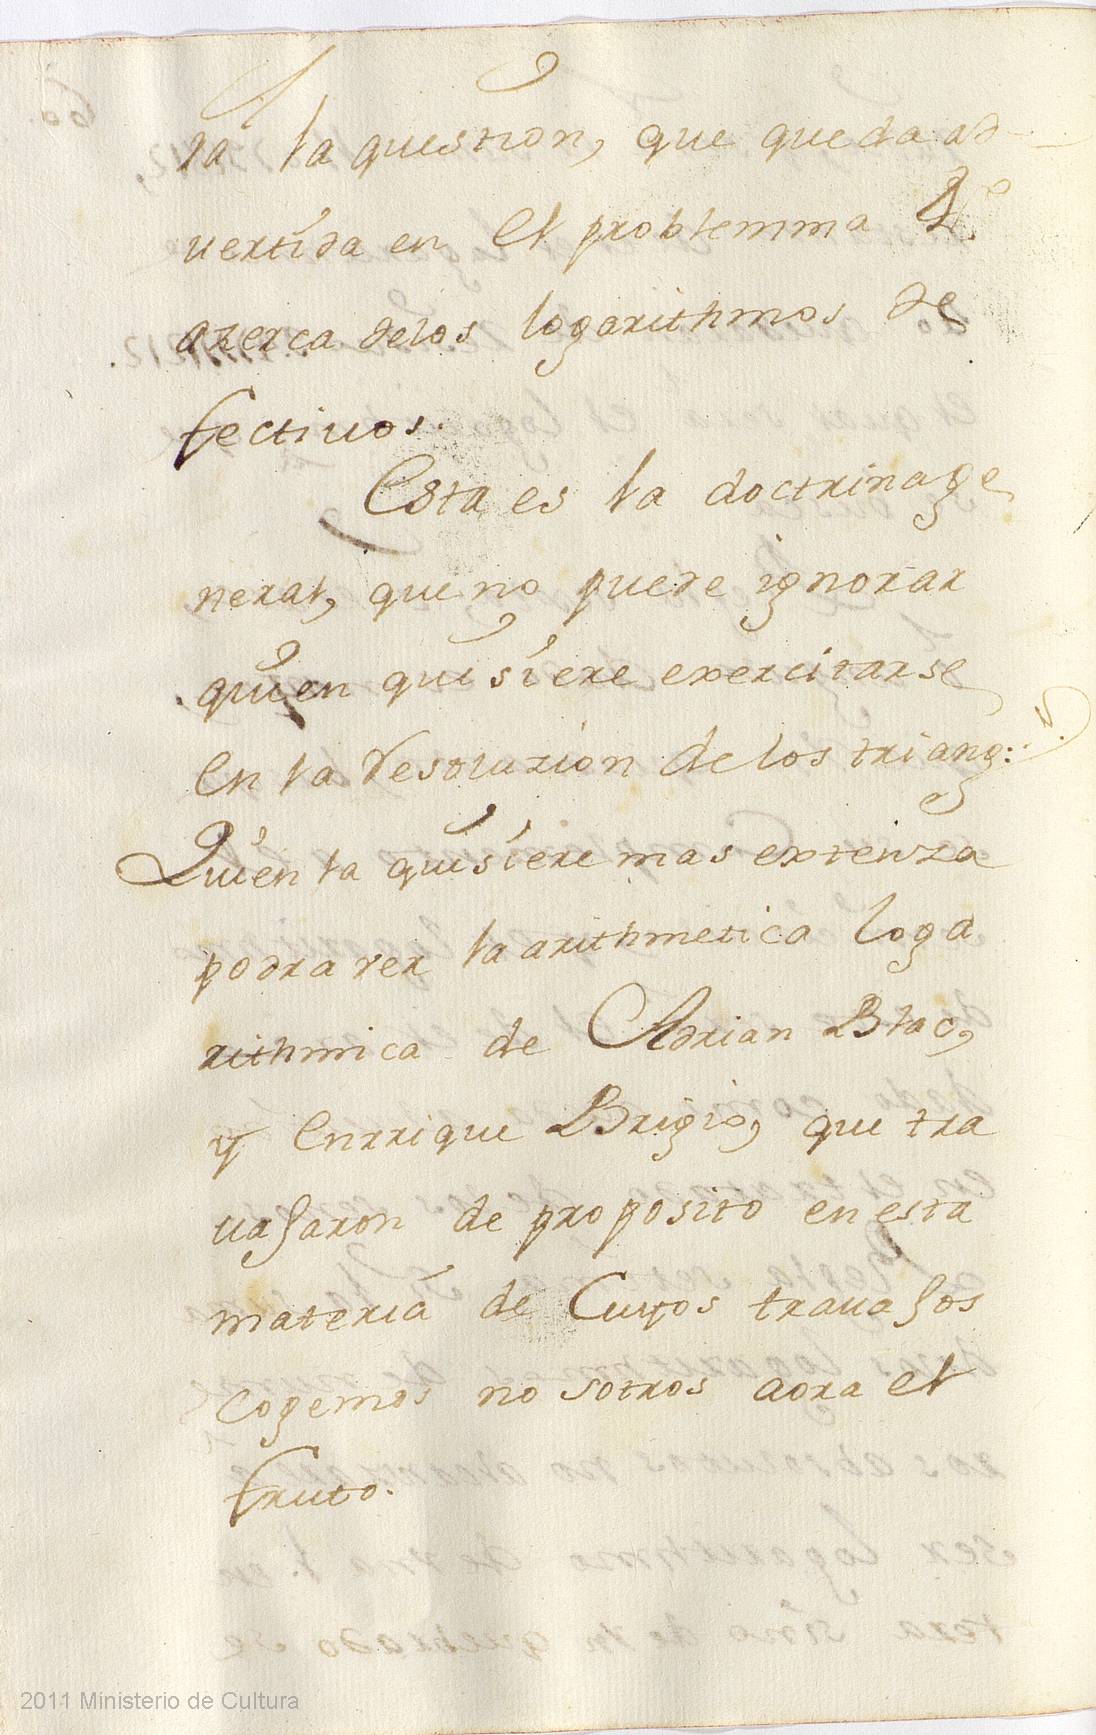 ra la question, que queda ad-
uertida en el problemma 4.º
azerca delos logarithmos de
fectiuos.
Esta es la doctrina ge
neral, que no puede ignorar
quien quisiere exercitarse
en la resoluzion de los triang:
Quien la quisiere mas extenza
podra ver la arithmetica loga
rithmica de Adrian Blac,
y Enrrique Brigio, que tra
uajaron de proposito en esta
materia de Cuyos trauajos
cogemos nosotros aora el
fruto.
2011 Ministerio de Cultura